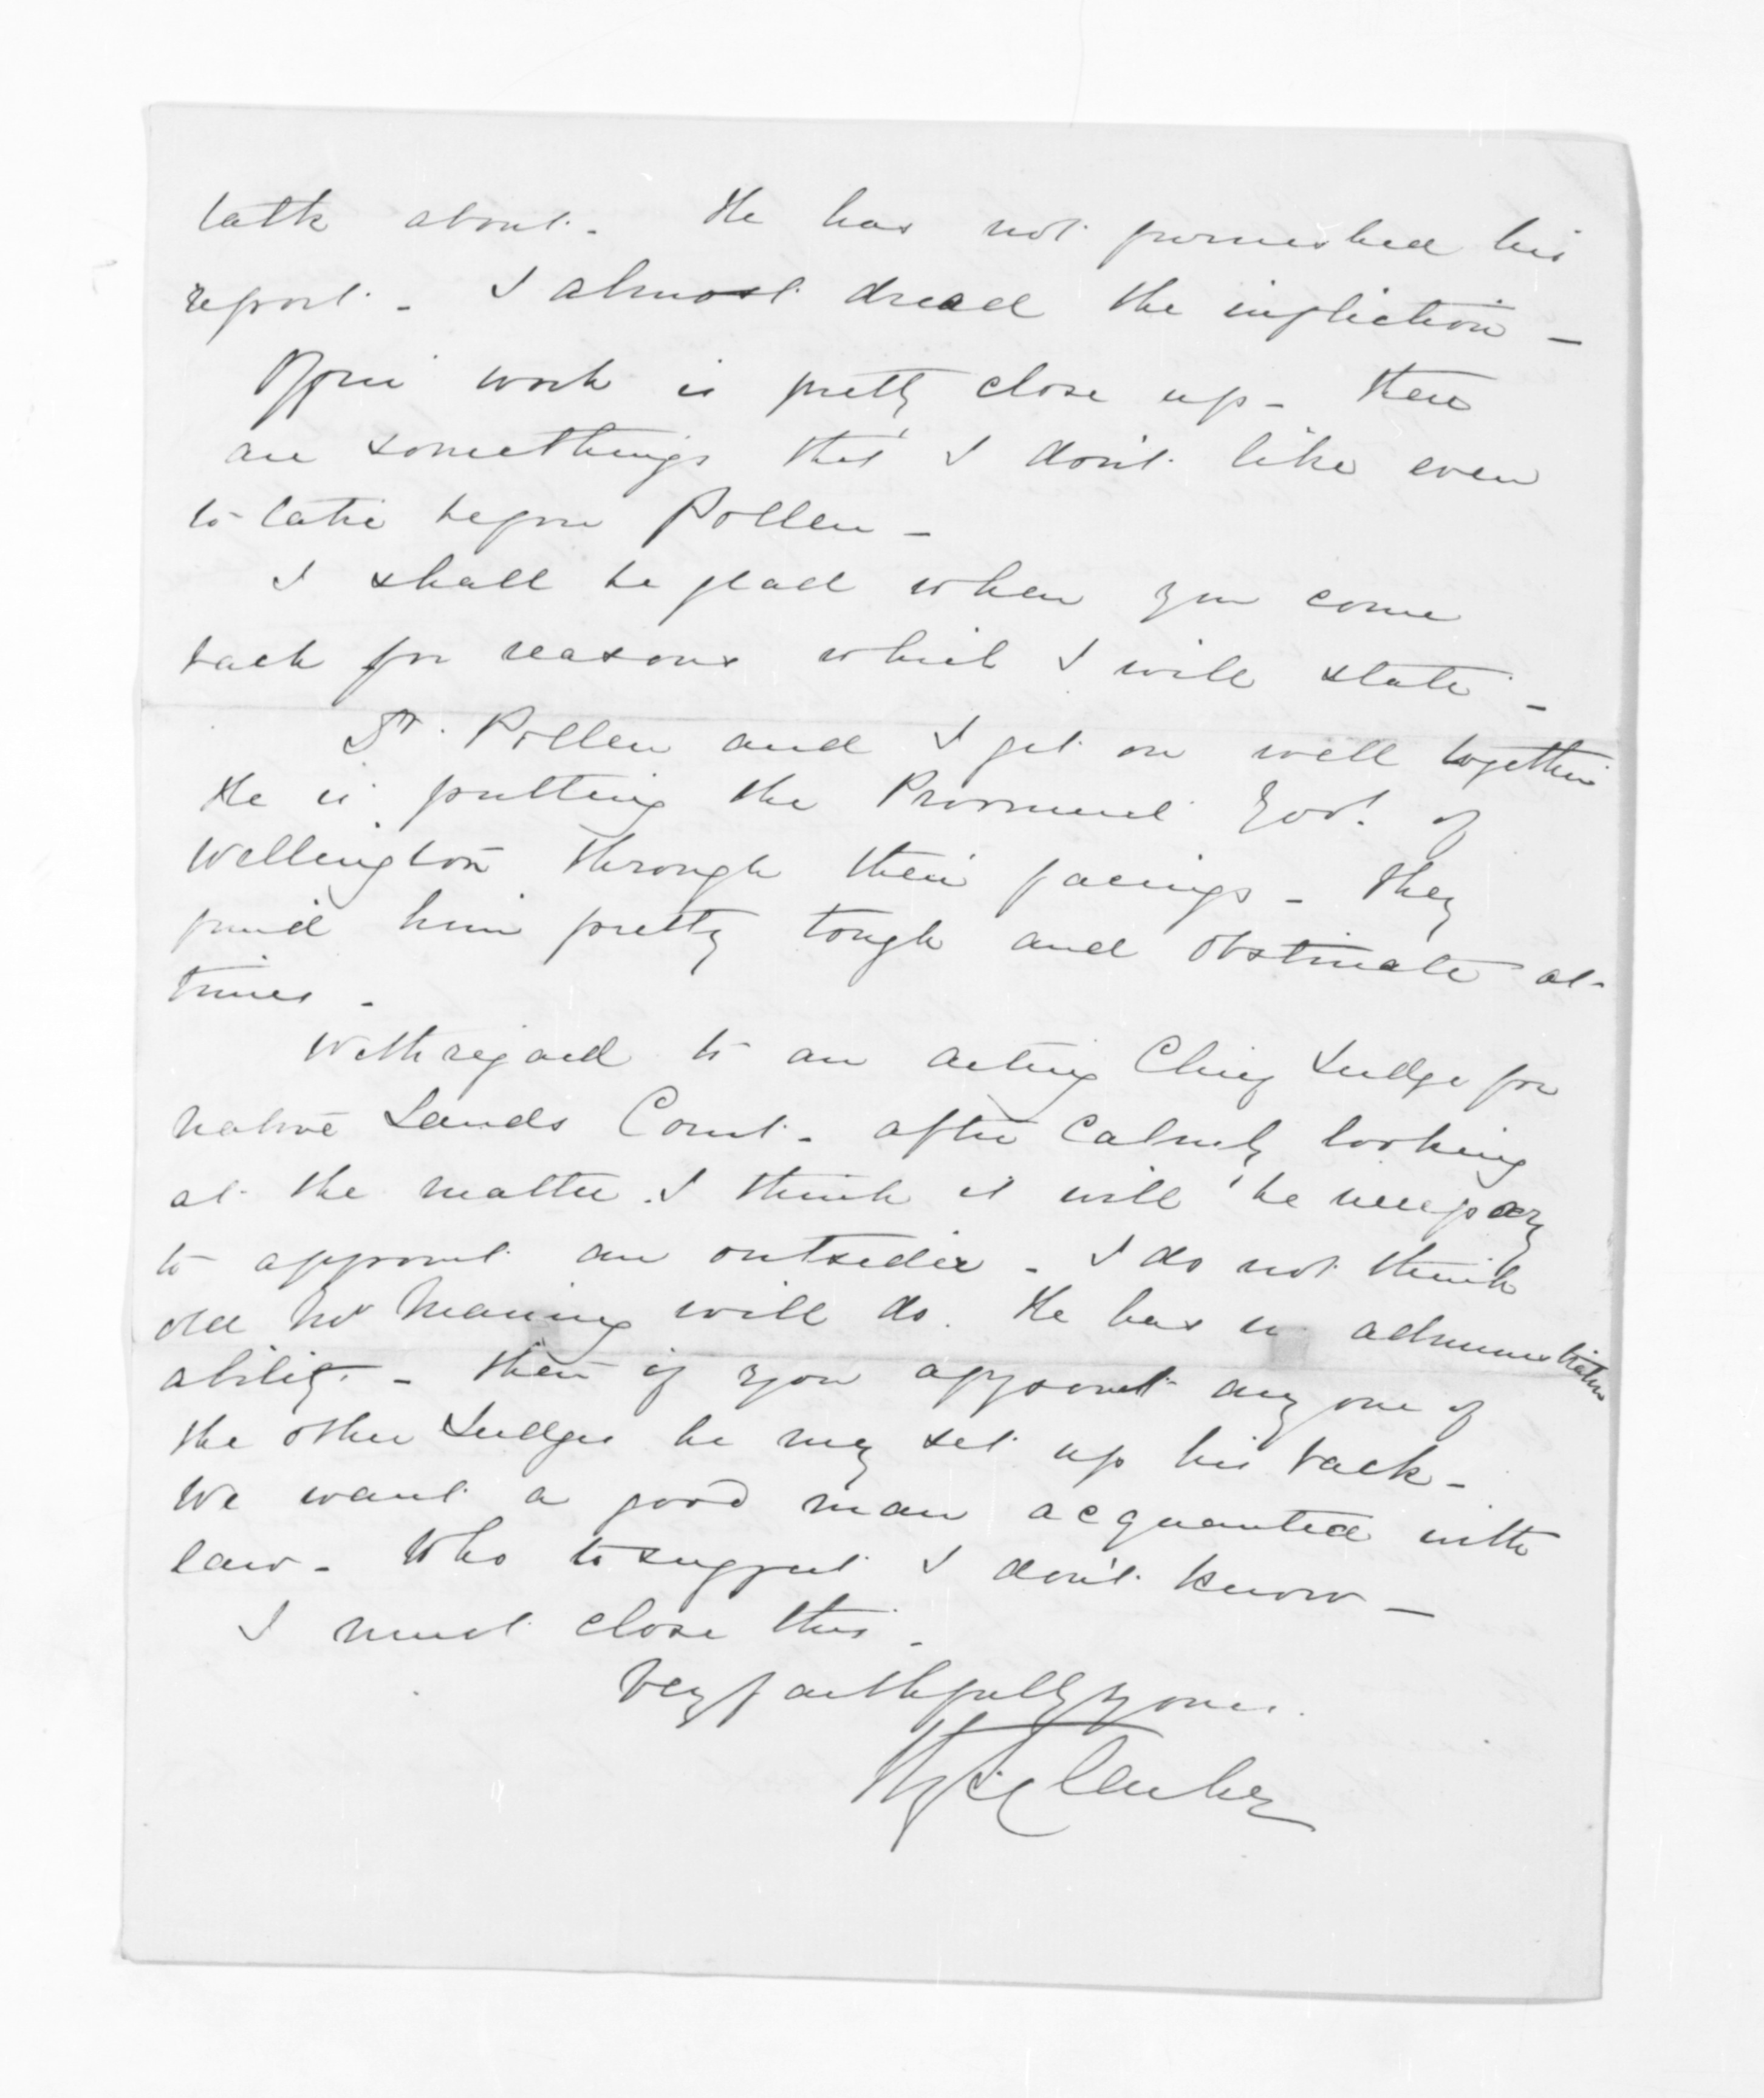 talk about. He has not furnished his
report. I almost dread the infliction -
Office work is pretty close up - there
are somethings that I don't like even
to take before Pollen -
I shall be glad when you come
back for reasons which I will state -
Dr. Pollen and I get on well together
He is putting the Provincial Govt. of
Wellington through their facings - they
find him pretty tough and obstinate at
times -
With regard to an acting Chief Judge for
Native Lands Court - after calmly looking
at the matter I think it will be necessary
to appoint an outsider - I do not think
old Mr Maning will do. He has no administrative
ability - then if you appoint any one of
the other Judges he may set up his back -
We want a good man acquainted with
law - Who to suggest I don't know -
I must close this -
Very faithfully yours.
H. T. Clarke